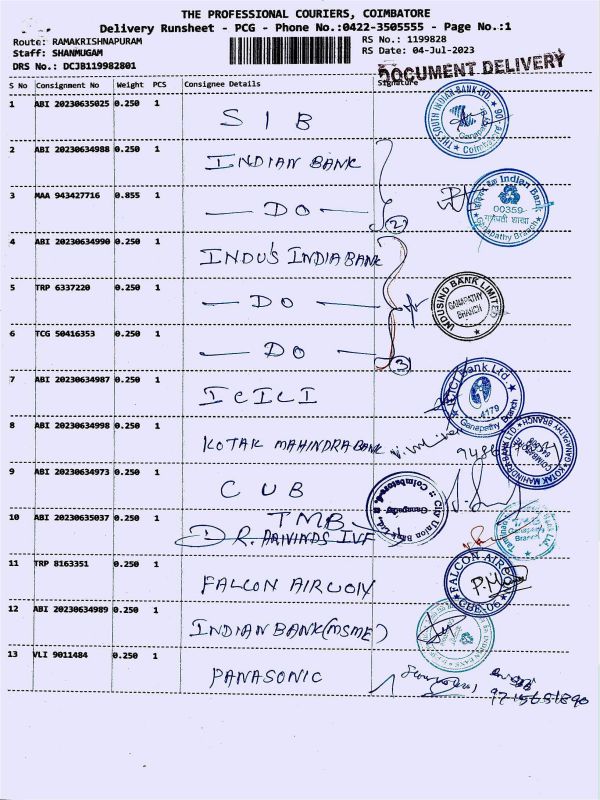 THE PROFESSIONAL COURIERS, COIMBATORE
Delivery Runsheet - PCG - Phone No.:0422-3505555 - Page No.:1
Route: RAMAKRISHNAPURAM
RS No.: 1199828
Staff: SHANMUGAM
RS Date: 04-Jul-2023
DRS No.: DCJB119982801
DOCUMENT DELIVERY
S No Consignment No Weight PCS Consignee Details Signature
1 ABI 20230635025 0.250 1
SIB
THE SOUTH INDIAN BANK LTD. Ganapathy Coimbatore
2 ABI 20230634988 0.250 1
INDIAN BANK
3 MAA 943427716 0.855 1
— DO —
2
Indian Bank
00359
गणपती शाखा
Ganapathy Branch
4 ABI 20230634990 0.250 1
INDU'S INDIA BANK
5 TRP 6337220 0.250 1
— DO —
INDUSIND BANK LIMITED
GANAPATHY
BRANCH
6 TCG 50416353 0.250 1
— DO —
3
7 ABI 20230634987 0.250 1
ICICI
ICICI Bank Ltd
4179
Ganapathy Branch
8 ABI 20230634998 0.250 1
KOTAK MAHINDRA BANK
KOTAK MAHINDRA BANK LTD GANAPATHY BRANCH
9 ABI 20230634973 0.250 1
CUB
City Union Bank Ltd. Ganapathy Coimbatore
10 ABI 20230635037 0.250 1
TMB
DR. ARIVINDS IVF
Branch
11 TRP 8163351 0.250 1
FALCON AIRWOIY
FALCON AIRE
CBE-06
12 ABI 20230634989 0.250 1
INDIAN BANK (MSME)
13 VLI 9011484 0.250 1
PANASONIC